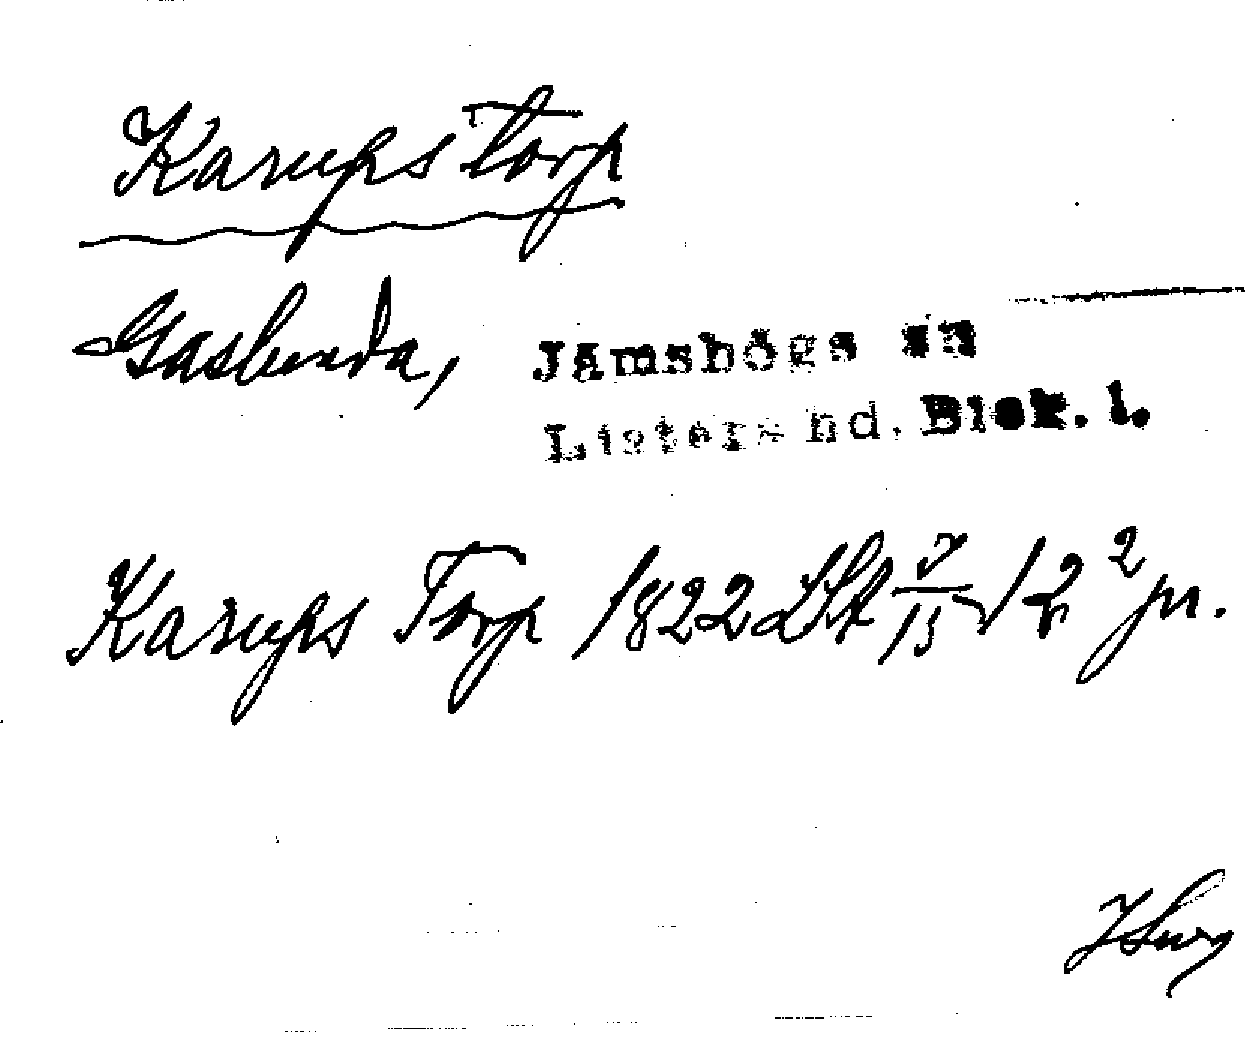 Karups Torp
Gaslunda, Jämshögs sn
Listers hd. Blek. l.
Karups Torp 1822 LSt